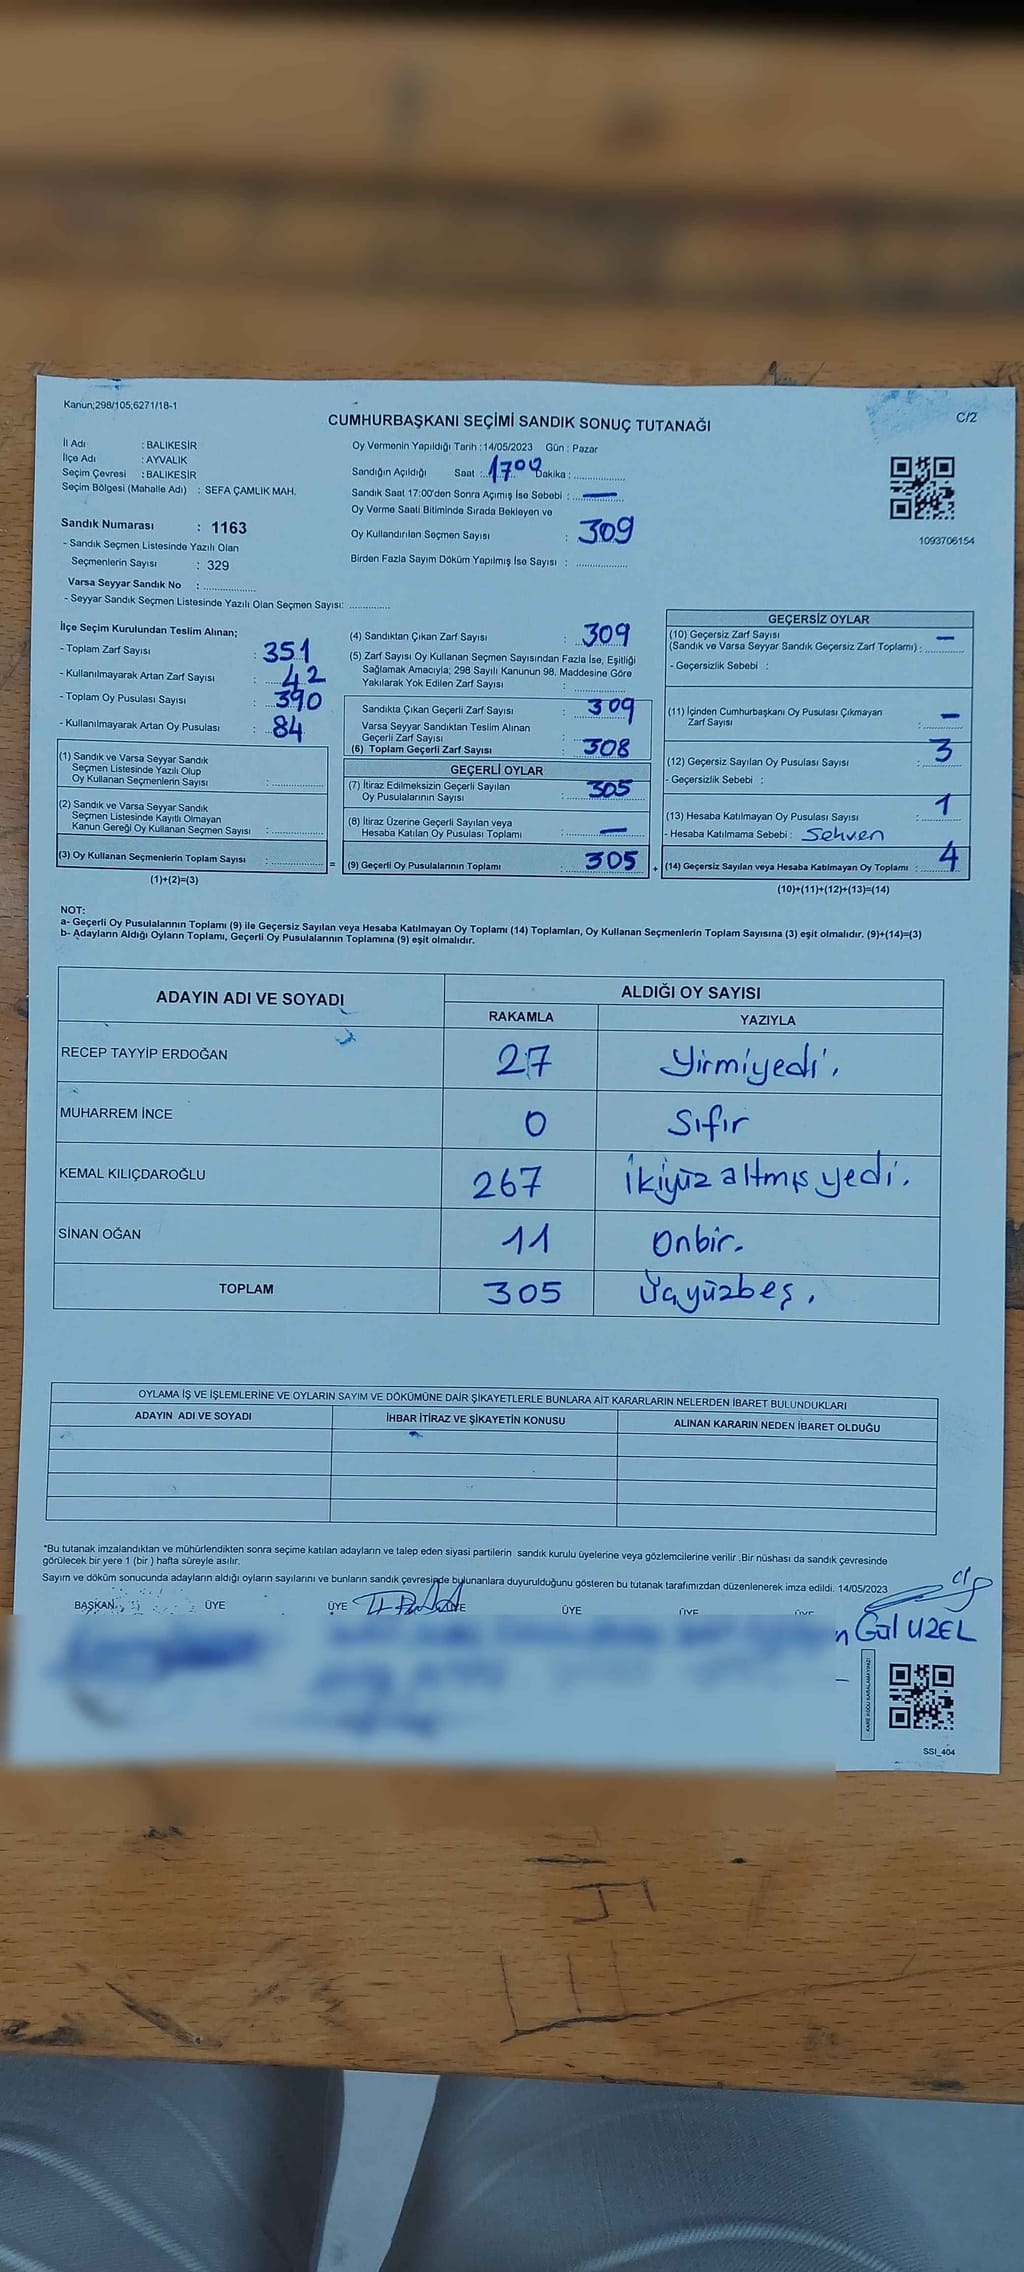 Kanun;298/105;6271/18-1
C/2
CUMHURBAŞKANI SEÇİMİ SANDIK SONUÇ TUTANAĞI
İl Adı : BALIKESİR
İlçe Adı : AYVALIK
Seçim Çevresi : BALIKESİR
Seçim Bölgesi (Mahalle Adı) : SEFA ÇAMLIK MAH.
Sandık Numarası : 1163
- Sandık Seçmen Listesinde Yazılı Olan
Seçmenlerin Sayısı : 329
Varsa Seyyar Sandık No : ..............
- Seyyar Sandık Seçmen Listesinde Yazılı Olan Seçmen Sayısı: ............
Oy Vermenin Yapıldığı Tarih : 14/05/2023 Gün : Pazar
Sandığın Açıldığı Saat : 17 00 Dakika : ..............
Sandık Saat 17:00'den Sonra Açımış İse Sebebi : —
Oy Verme Saati Bitiminde Sırada Bekleyen ve
Oy Kullandırılan Seçmen Sayısı : 309
Birden Fazla Sayım Döküm Yapılmış İse Sayısı : ..............
1093706154
İlçe Seçim Kurulundan Teslim Alınan;
- Toplam Zarf Sayısı : 351
- Kullanılmayarak Artan Zarf Sayısı : 42
- Toplam Oy Pusulası Sayısı : 390
- Kullanılmayarak Artan Oy Pusulası : 84
(1) Sandık ve Varsa Seyyar Sandık
Seçmen Listesinde Yazılı Olup
Oy Kullanan Seçmenlerin Sayısı : ..............
(2) Sandık ve Varsa Seyyar Sandık
Seçmen Listesinde Kayıtlı Olmayan
Kanun Gereği Oy Kullanan Seçmen Sayısı : ..............
(3) Oy Kullanan Seçmenlerin Toplam Sayısı : ..............
(1)+(2)=(3)
=
(4) Sandıktan Çıkan Zarf Sayısı : 309
(5) Zarf Sayısı Oy Kullanan Seçmen Sayısından Fazla İse, Eşitliği
Sağlamak Amacıyla; 298 Sayılı Kanunun 98. Maddesine Göre
Yakılarak Yok Edilen Zarf Sayısı : ..............
Sandıkta Çıkan Geçerli Zarf Sayısı : 309
Varsa Seyyar Sandıktan Teslim Alınan
Geçerli Zarf Sayısı :
(6) Toplam Geçerli Zarf Sayısı : 308
GEÇERLİ OYLAR
(7) İtiraz Edilmeksizin Geçerli Sayılan
Oy Pusulalarının Sayısı : 305
(8) İtiraz Üzerine Geçerli Sayılan veya
Hesaba Katılan Oy Pusulası Toplamı : —
(9) Geçerli Oy Pusulalarının Toplamı : 305
+
GEÇERSİZ OYLAR
(10) Geçersiz Zarf Sayısı —
(Sandık ve Varsa Seyyar Sandık Geçersiz Zarf Toplamı) : ..........
- Geçersizlik Sebebi :
(11) İçinden Cumhurbaşkanı Oy Pusulası Çıkmayan
Zarf Sayısı : —
(12) Geçersiz Sayılan Oy Pusulası Sayısı : 3
- Geçersizlik Sebebi :
(13) Hesaba Katılmayan Oy Pusulası Sayısı : 1
- Hesaba Katılmama Sebebi : Sehven
(14) Geçersiz Sayılan veya Hesaba Katılmayan Oy Toplamı : 4
(10)+(11)+(12)+(13)=(14)
NOT:
a- Geçerli Oy Pusulalarının Toplamı (9) ile Geçersiz Sayılan veya Hesaba Katılmayan Oy Toplamı (14) Toplamları, Oy Kullanan Seçmenlerin Toplam Sayısına (3) eşit olmalıdır. (9)+(14)=(3)
b- Adayların Aldığı Oyların Toplamı, Geçerli Oy Pusulalarının Toplamına (9) eşit olmalıdır.
ADAYIN ADI VE SOYADI
ALDIĞI OY SAYISI
RAKAMLA YAZIYLA
RECEP TAYYİP ERDOĞAN 27 Yirmiyedi.
MUHARREM İNCE 0 Sıfır
KEMAL KILIÇDAROĞLU 267 İkiyüz altmış yedi.
SİNAN OĞAN 11 Onbir.
TOPLAM 305
OYLAMA İŞ VE İŞLEMLERİNE VE OYLARIN SAYIM VE DÖKÜMÜNE DAİR ŞİKAYETLERLE BUNLARA AİT KARARLARIN NELERDEN İBARET BULUNDUKLARI
ADAYIN ADI VE SOYADI İHBAR İTİRAZ VE ŞİKAYETİN KONUSU ALINAN KARARIN NEDEN İBARET OLDUĞU
*Bu tutanak imzalandıktan ve mühürlendikten sonra seçime katılan adayların ve talep eden siyasi partilerin sandık kurulu üyelerine veya gözlemcilerine verilir .Bir nüshası da sandık çevresinde
görülecek bir yere 1 (bir ) hafta süreyle asılır.
Sayım ve döküm sonucunda adayların aldığı oyların sayılarını ve bunların sandık çevresinde bulunanlara duyurulduğunu gösteren bu tutanak tarafımızdan düzenlenerek imza edildi. 14/05/2023
BAŞKAN ÜYE ÜYE ÜYE ÜYE ÜYE ÜYE
Gül UZEL
KARE KODU KARALAMAYINIZ!
SSI_404